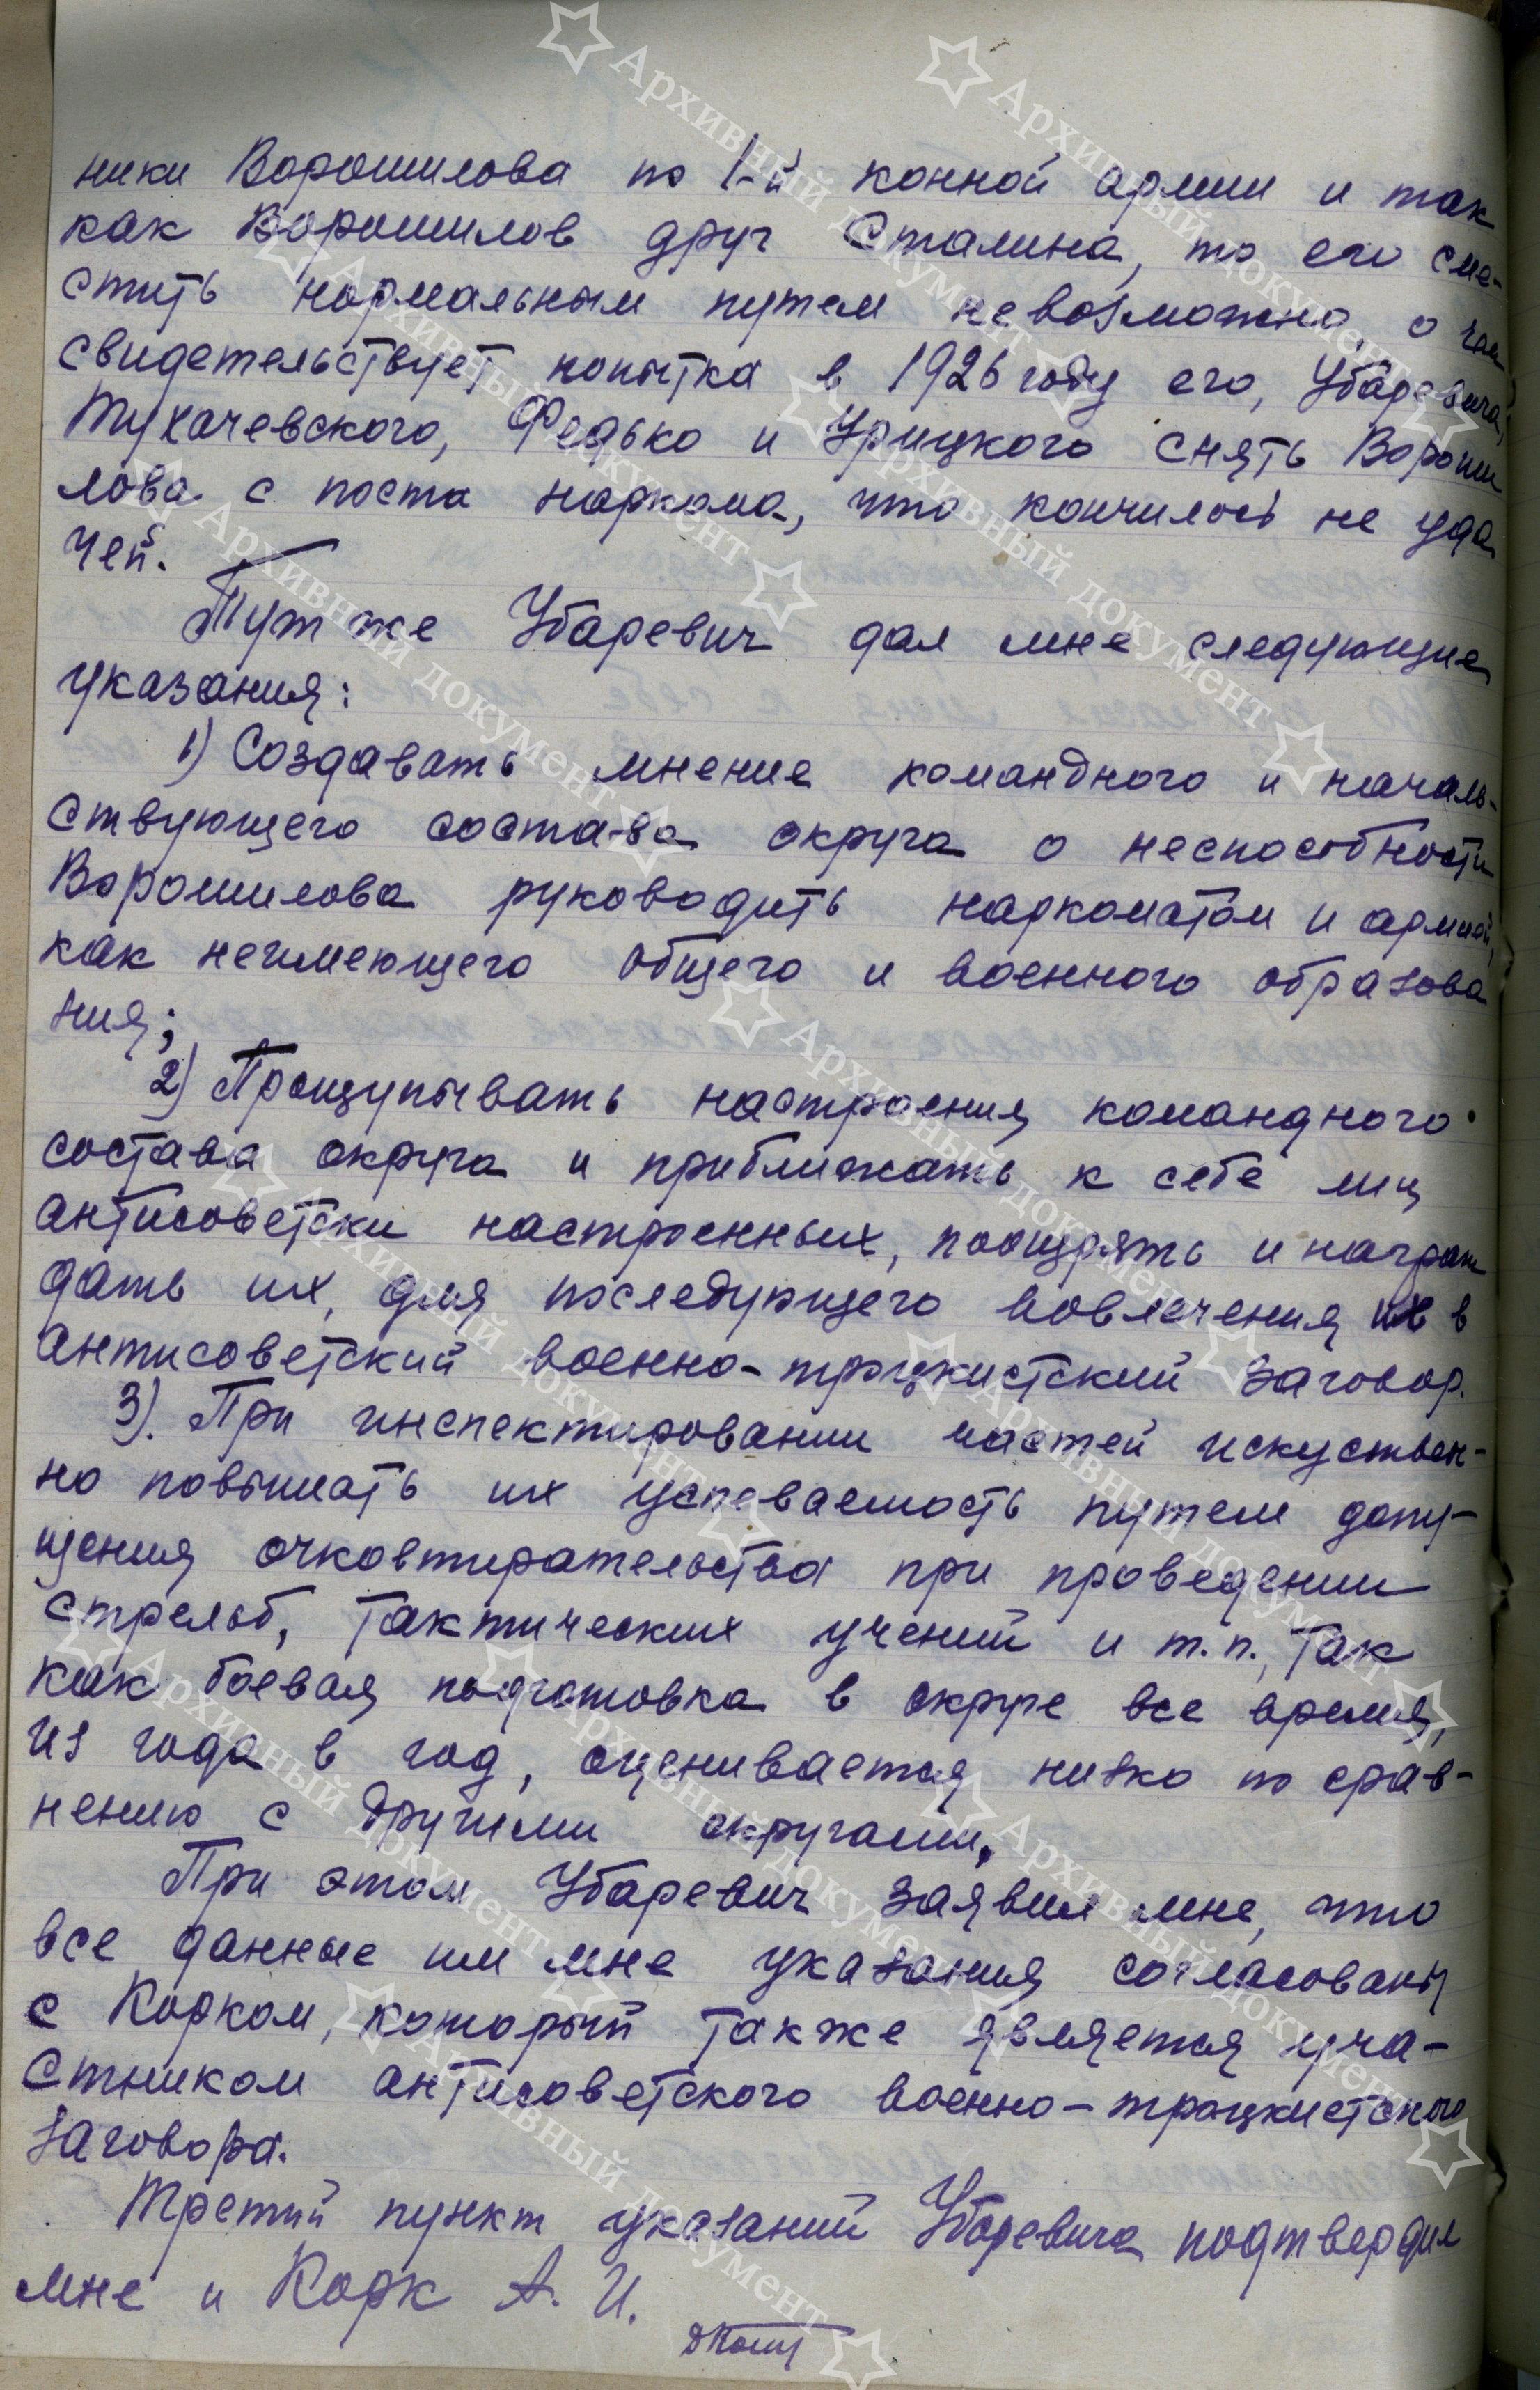 ники Ворошилова по 1-й конной армии и так
как Ворошилов друг Сталина, то его сме-
стить нормальным путем невозможно, о чем
свидетельствует попытка в 1926 году его, Убаревича,
Тухачевского, Федько и Урицкого снять Вороши
лова с поста наркома, что кончилось не уда
чей.
Тут же Убаревич дал мне следующие
указания:
1) Создавать мнение командного и началь-
ствующего состава округа о неспособности
Ворошилова руководить наркоматом и армией,
как неимеющего общего и военного образова
ния;
2) Прощупывать настроения командного
состава округа и приближать к себе лиц
антисоветски настроенных, поощрять и награж
дать их, для последующего вовлечения их в
антисоветский военно-троцкистский заговор.
3). При инспектировании частей искуствен-
но повышать их успеваемость путем допу-
щения очковтирательства при проведении
стрельб, тактических учений и т.п., так
как боевая подготовка в округе все время,
из года в год, оценивается низко по срав-
нению с другими округами.
При этом Убаревич заявил мне, что
все данные им мне указания согласованы
с Корком, который также является уча-
стником антисоветского военно-троцкистского
заговора.
Третий пункт указаний Убаревича подтвердил
мне и Корк А. И.
Архивный документ
Архивный документ
Архивный документ
Архивный документ
Архивный документ
Архивный документ
Архивный документ
Архивный документ
Архивный документ
Архивный документ
Архивный документ
Архивный документ
Архивный документ